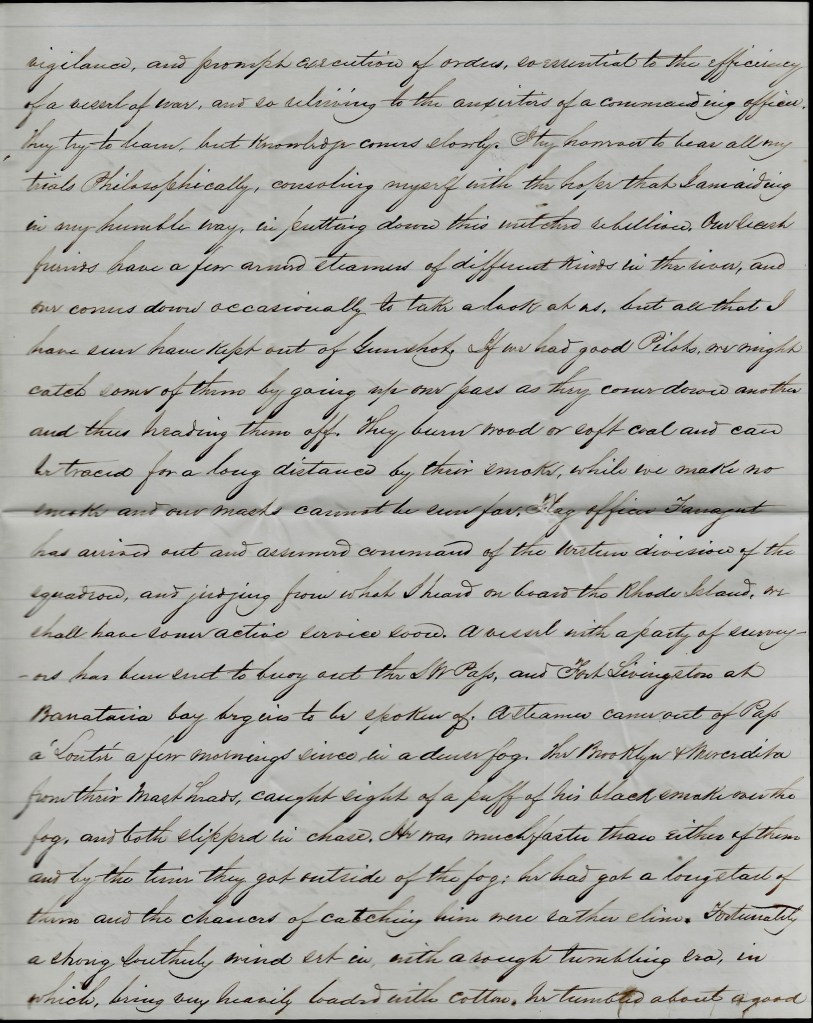 vigilance, and prompt execution of orders, so essential to the efficiency
of a vessel of war, and so relieving to the anxieties of a commanding officer.
They try to learn, but knowledge comes slowly. I try however to bear all my
trials Philosophically, consoling myself with the hope that I am aiding
in my humble way, in putting down this wretched rebellion. Our secesh
friends have a few armed steamers of different kinds in the river, and
one comes down occasionally to take a look at us, but all that I
have seen have kept out of Gunshot. If we had good Pilots, we might
catch some of them by going up one pass as they come down another
and thus heading them off. They burn wood or soft coal and can
be traced for a long distance by their smoke, while we make no
smoke and our masts cannot be seen far. Flag officer Farragut
has arrived out and assumed command of the Western division of the
squadron, and judging from what I heard on board the Rhode Island, we
shall have some active service soon. A vessel with a party of survey-
-ors has been sent to buoy out the S W Pass, and Fort Livingston at
Barataria bay begins to be spoken of. A steamer came out of Pass
a' Loutre a few mornings since in a dense fog. The Brooklyn & Mercedita
from their Mast heads, caught sight of a puff of his black smoke over the
fog, and both slipped in chase. He was much faster than either of them
and by the time they got outside of the fog; he had got a long start of
them and the chances of catching him were rather slim. Fortunately
a strong southerly wind set in, with a rough tumbling sea, in
which, being very heavily loaded with cotton, he tumbled about a good